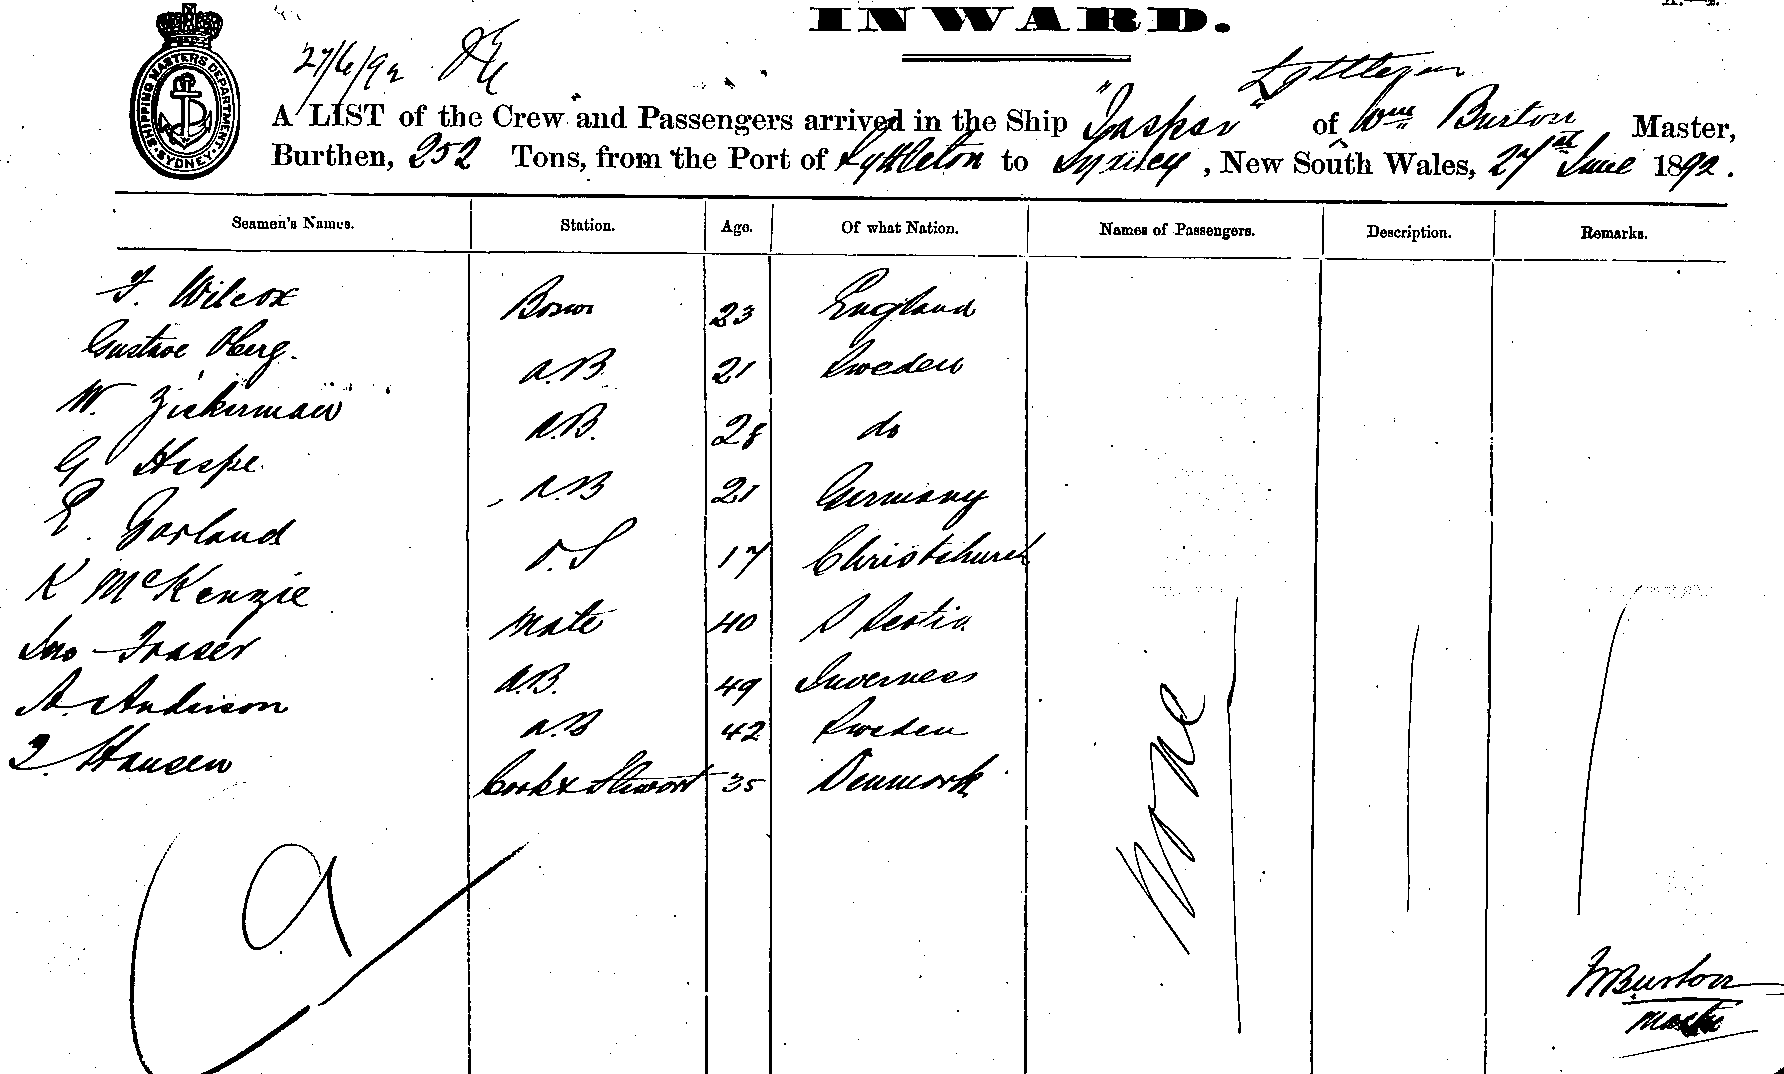 INWARD.
SHIPPING MASTERS DEPARTMENT
SYDNEY
27/6/92
Lyttleton
A LIST of the Crew and Passengers arrived in the Ship "Jasper" of Wm Burton Master,
Burthen, 252 Tons, from the Port of Lyttleton to Sydney, New South Wales, 27st June 1892.
Seamen's Names. Station. Age. Of what Nation. Names of Passengers. Description. Remarks.
F. Wilcox Bosun 23 England
Gustave Oberg. A.B. 21 Sweden
W. Zickerman A.B. 28 do
G Haspe. A.B 21 Germany
E. Garland O.S 17 Christchurch
K McKenzie Mate 40 Scotia
Jno Fraser A.B. 49 Inverness
A. Anderson A.B 42 Sweden
Hansen Cook & Steward 35 Denmark
None
9
WBurton
Master